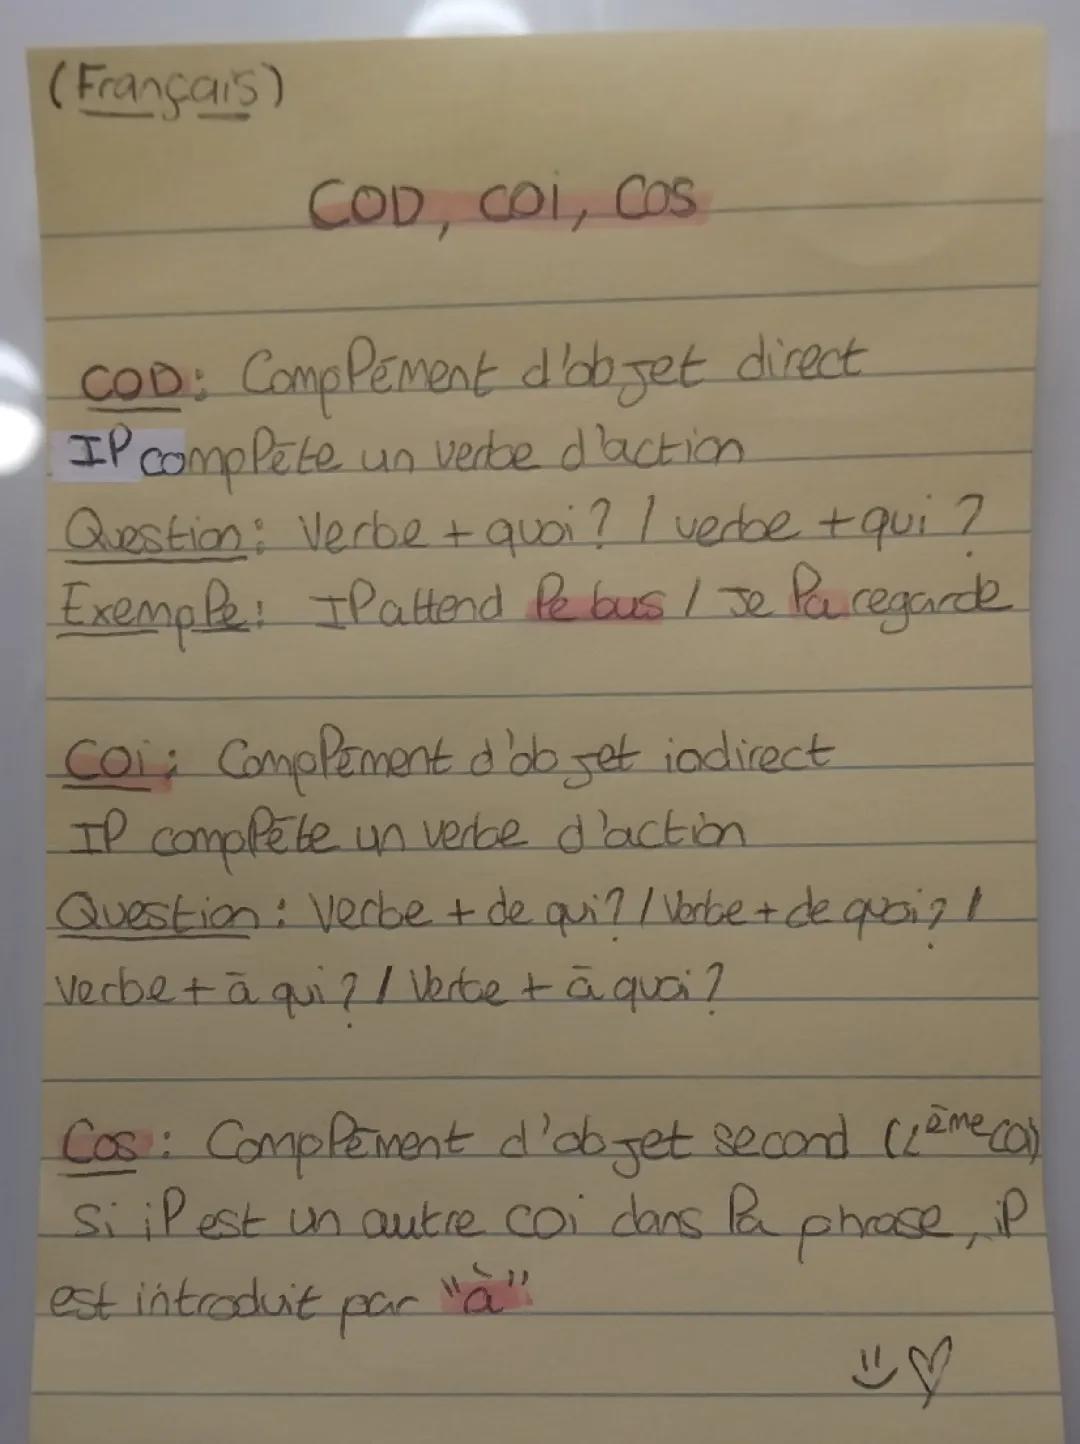 (Français)
COD, coi, cos
COD: Complément d'objet direct
Il complète un verbe d'action
Question: Verbe + quoi? / verbe + qui?
Exemple: Il attend le bus / Je la regarde
Coi: Complément d'objet indirect
Il complète un verbe d'action
Question: Verbe + de qui? / Verbe + de quoi? /
verbe + à qui? / Verbe + à quoi?
Cos: Complément d'objet second (2ème coi)
Si il est un autre coi dans la phrase, il
est introduit par "à"